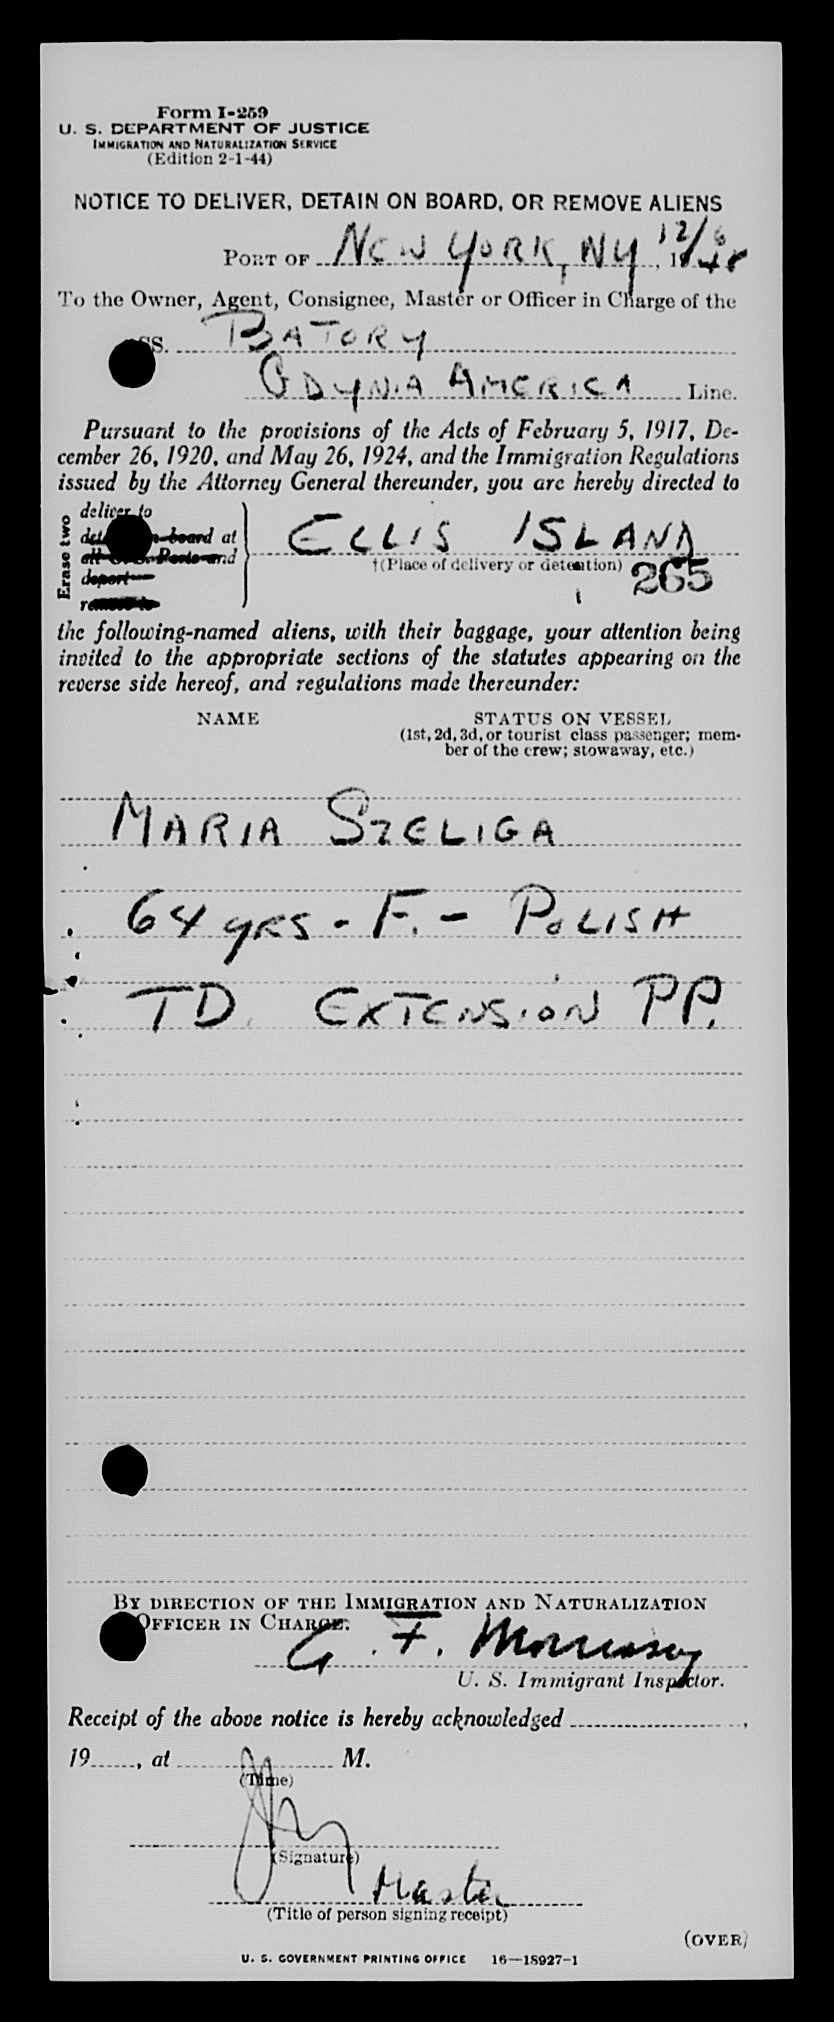 Form I-259
U. S. DEPARTMENT OF JUSTICE
IMMIGRATION AND NATURALIZATION SERVICE
(Edition 2-1-44)
NOTICE TO DELIVER, DETAIN ON BOARD, OR REMOVE ALIENS
PORT OF NEW YORK, NY, 12/6 1948
To the Owner, Agent, Consignee, Master or Officer in Charge of the
SS. BATORY
GDYNIA AMERICA Line.
Pursuant to the provisions of the Acts of February 5, 1917, De-
cember 26, 1920, and May 26, 1924, and the Immigration Regulations
issued by the Attorney General thereunder, you are hereby directed to
Erase two
deliver to
board at
all Ports and
deport
remove to
ELLIS ISLAND
†(Place of delivery or detention) 265
the following-named aliens, with their baggage, your attention being
invited to the appropriate sections of the statutes appearing on the
reverse side hereof, and regulations made thereunder:
NAME STATUS ON VESSEL
(1st, 2d, 3d, or tourist class passenger; mem-
ber of the crew; stowaway, etc.)
MARIA SZELIGA
64 yRS - F. - POLISH
TD. EXTENSION PP.
BY DIRECTION OF THE IMMIGRATION AND NATURALIZATION
OFFICER IN CHARGE.
G. F. Morrissey
U. S. Immigrant Inspector.
Receipt of the above notice is hereby acknowledged ,
19 , at M.
(Time)
(Signature)
Master
(Title of person signing receipt)
(OVER)
U. S. GOVERNMENT PRINTING OFFICE 16—18927-1